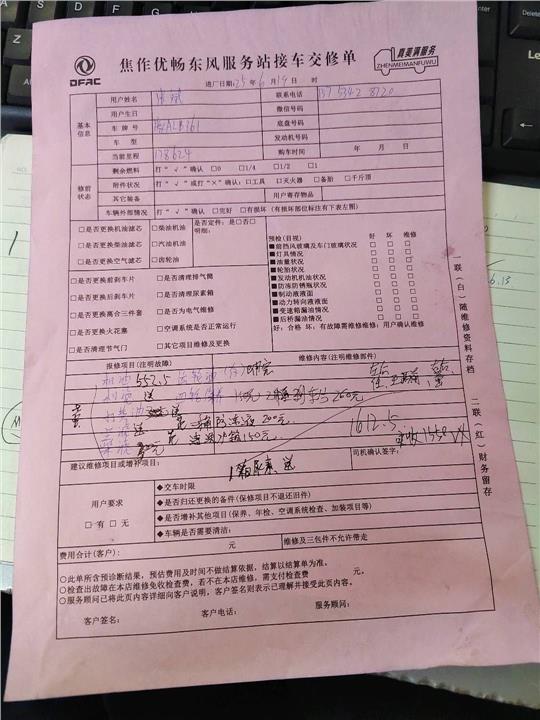 DFAC
焦作优畅东风服务站接车交修单
真美满服务
ZHENMEIMANFUWU
进厂日期:25年6月19日 时
基本信息
用户姓名
联系电话
用户生日
微信号码
车牌号
底盘号码
车型
发动机号码
当前里程 178624
购车时间 年 月 日
修前状态
剩余燃料 打“√”确认 □0 □1/4 □1/2 □1
附件状况 打“√”或打“×”确认:□工具 □灭火器 □备胎 □千斤顶
其它装备
用户寄存物品
车辆外部情况 打“√”确认 □完好 □有损坏(有损坏部位标注有下表左图)
□是否更换机油滤芯 □柴油机油 是否定件:是□否□
□是否更换柴油滤芯 □汽机油 明细:
□是否更换空气滤芯 □齿轮油
□是否更换前刹车片 □是否清理排气筒
□是否更换后刹车片 □是否清理尿素箱
□是否更换离合三件套 □是否为电气维修
□是否更换火花塞 □空调系统是否正常运行
□是否清理节气门 □其它项目维修及更换
预检(目视) 好 坏 维修
■前挡风玻璃及车门玻璃状况 □ □ □
■灯具情况 □ □ □
■油量状况 □ □ □
■轮胎状况 □ □ □
■发动机机油状况 □ □ □
■防冻防锈瓶状况 □ □ □
■制动液液面 □ □ □
■动力转向液液面 □ □ □
■变速箱漏油情况 □ □ □
■后桥漏油情况 □ □ □
好:合格 坏:有故障需维修维修:用户确认维修
报修项目(注明故障)
维修内容(注明维修部件)
机油 552.5 齿轮油
送
260元
送 200元
150元
1612.5
实收1550
建议维修项目或增补项目:
1箱尿素 送
司机确认签字:
用户要求
□有 □无
◆交车时限
◆是否归还更换的备件(保修项目不退还旧件)
◆是否增补其他项目(保养、年检、空调系统检查、加装项目等)
◆车辆是否需要清洁:
费用合计(客户): 元
维修及三包件不允许带走
○此单所含预诊断结果,预估费用及时间不做结算依据,结算以结算单为准。
○检查出故障在本店维修免收检查费,若不在本店维修,需支付检查费 元。
○服务顾问已将此页内容详细向客户说明,客户签名则表示已理解并接受此页内容。
客户签名: 客户电话: 服务顾问:
一联(白)随维修资料存档
二联(红)财务留存